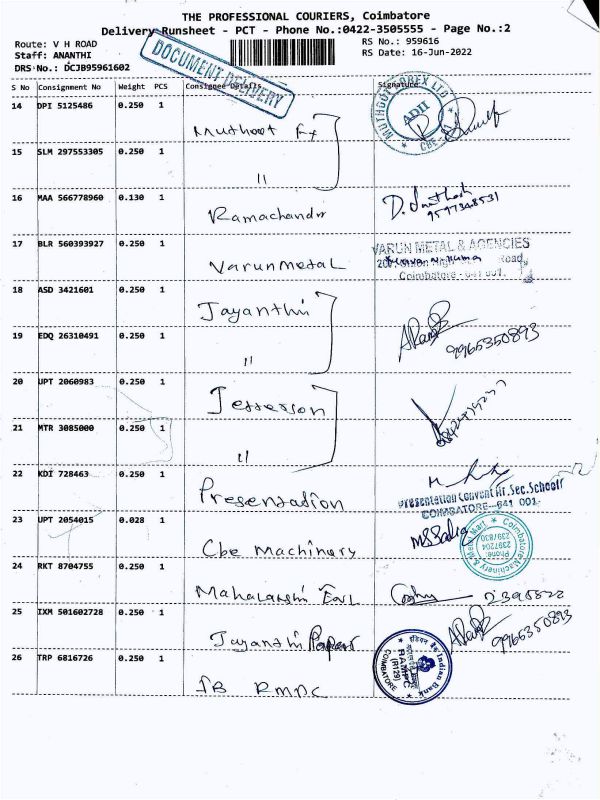 THE PROFESSIONAL COURIERS, Coimbatore
Delivery Runsheet - PCT - Phone No.:0422-3505555 - Page No.:2
Route: V H ROAD
RS No.: 959616
Staff: ANANTHI
RS Date: 16-Jun-2022
DRS No.: DCJB95961602
DOCUMENT DELIVERY
S No Consignment No Weight PCS Consignee Details Signature
14 DPI 5125486 0.250 1 Muthoot Fx
MUTHOOT FOREX LTD ADII CBE
15 SLM 297553305 0.250 1 "
16 MAA 566778960 0.130 1 Ramachandr
9597348531
17 BLR 560393927 0.250 1 Varunmetal
VARUN METAL & AGENCIES
Road,
Coimbatore - 641 001.
18 ASD 3421601 0.250 1 Jayanthi
19 EDQ 26310491 0.250 1 "
9965350893
20 UPT 2060983 0.250 1 Jefferson
21 MTR 3085000 0.250 1 "
22 KDI 728463 0.250 1 Presentation
Presentation Convent Hr.Sec.School
COIMBATORE - 641 001
23 UPT 2054015 0.028 1 Cbe Machinery
MSSadiq
Coimbatore Machinery & Mart
Phone:
2397204
2397830
24 RKT 8704755 0.250 1 Mahalakshmi Earl
25 IXM 501602728 0.250 1 Jayanthi Papers
9965350893
26 TRP 6816726 0.250 1 IB RMPC
इंडियन बैंक Indian Bank
RAMPC
(R129)
COIMBATORE